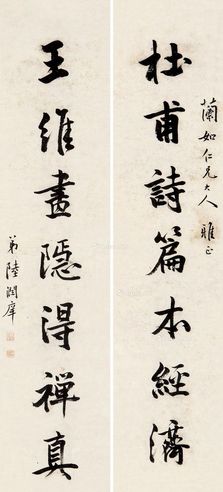 蘭如仁兄大人雅正
杜甫詩篇本經濟
王維畫隱得禪真
弟陸潤庠